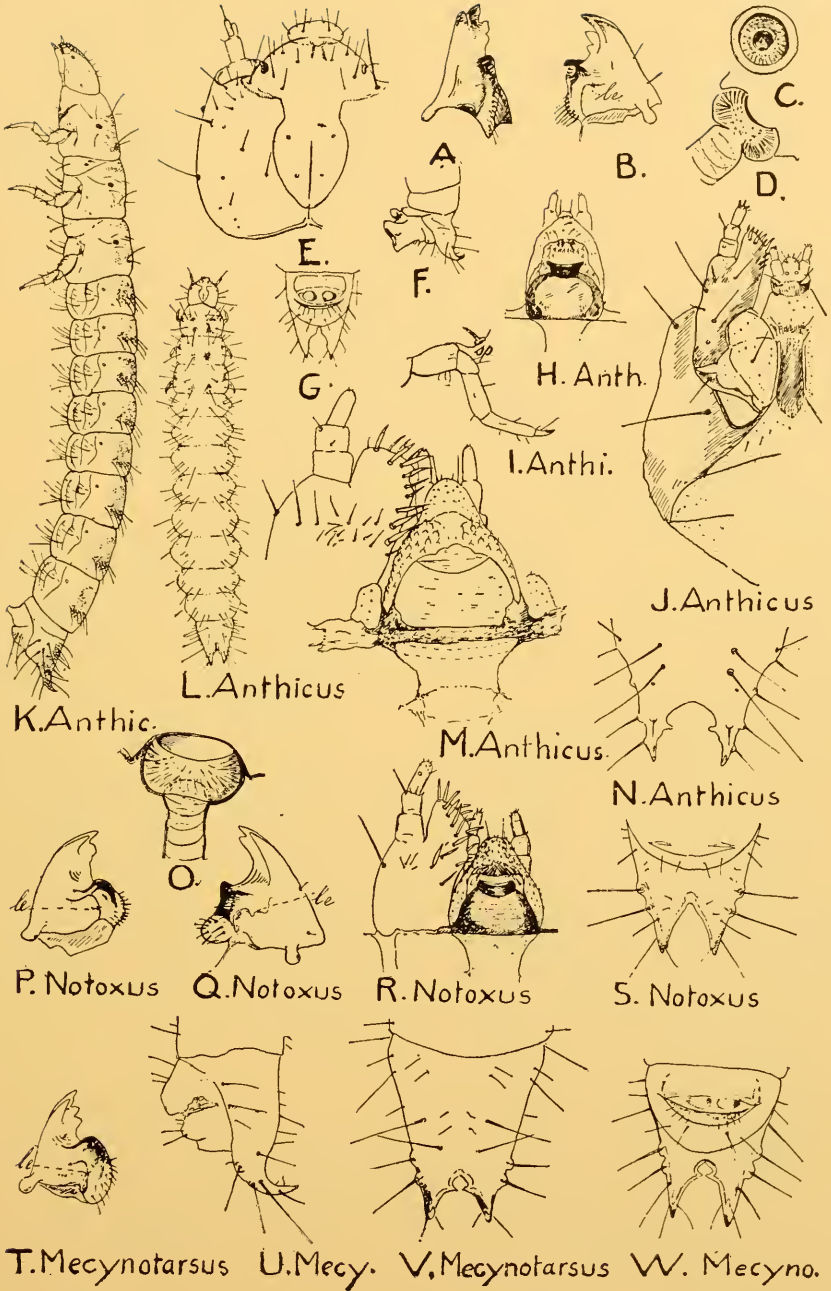 A.
B.
le
C.
D.
E.
F.
G.
H. Anth.
I. Anthi.
J. Anthicus
K. Anthic.
L. Anthicus
M. Anthicus.
N. Anthicus
O.
le
P. Notoxus
le
Q. Notoxus
R. Notoxus
S. Notoxus
le
T. Mecynotarsus
U. Mecy.
V. Mecynotarsus
W. Mecyno.